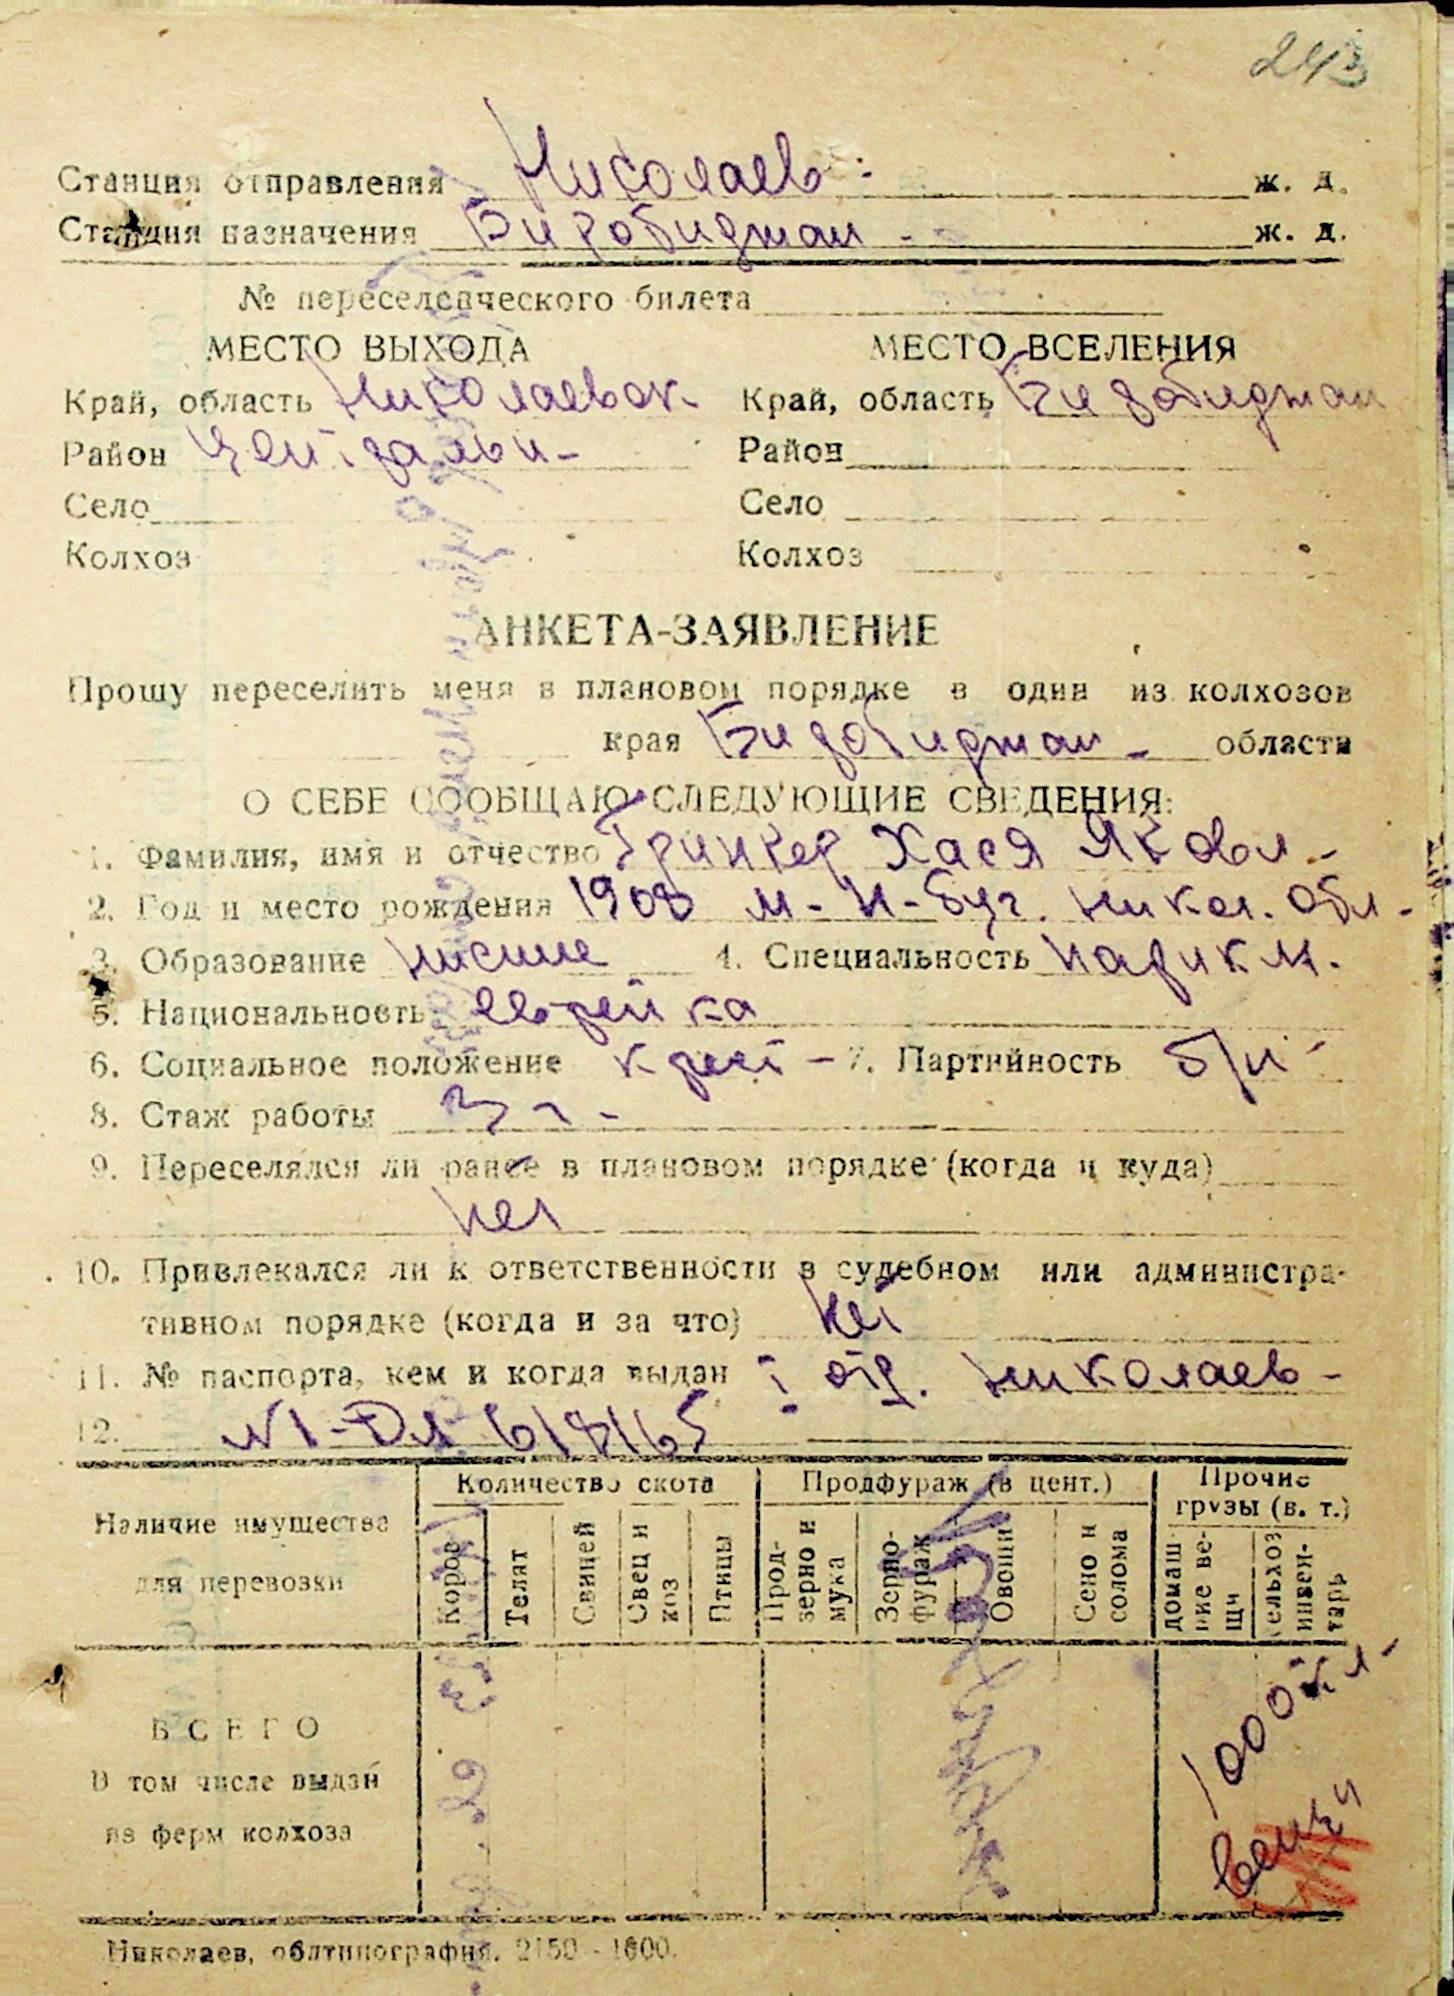 243
Станция отправления Николаев ж. д.
Станция назначения Биробиджан ж. д.
№ переселенческого билета
МЕСТО ВЫХОДА МЕСТО ВСЕЛЕНИЯ
Край, область Николаевск. Край, область Биробиджан
Район Централын- Район
Село Село
Колхоз Колхоз
АНКЕТА-ЗАЯВЛЕНИЕ
Прошу переселить меня в плановом порядке в один из колхозов
края Биробиджан - области
О СЕБЕ СООБЩАЮ СЛЕДУЮЩИЕ СВЕДЕНИЯ:
1. Фамилия, имя и отчество Гринкер Хася Яковл-
2. Год и место рождения 1908 м-Н-Буг. Никол. обл-
3. Образование нисшее 4. Специальность парикм.
5. Национальность еврейка
6. Социальное положение крест- 7. Партийность б/п
8. Стаж работы 3 г-
9. Переселялся ли ранее в плановом порядке (когда и куда)
нет
10. Привлекался ли к ответственности в судебном или администра-
тивном порядке (когда и за что) нет
11. № паспорта, кем и когда выдан I отд. Николаев-
12. 618165
Наличие имущества для перевозки
Количество скота Продфураж (в цент.) Прочие грузы (в. т.)
Коров Телят Свиней Овец и коз Птицы Прод-зерно и мука Зерно-фураж Овощи Сено и солома домаш ние ве-щи сельхоз инвен-тарь
ВСЕГО
В том числе выдан
из ферм колхоза
1000 кл-
вещи
Николаев, облтипография. 2150 - 1600.